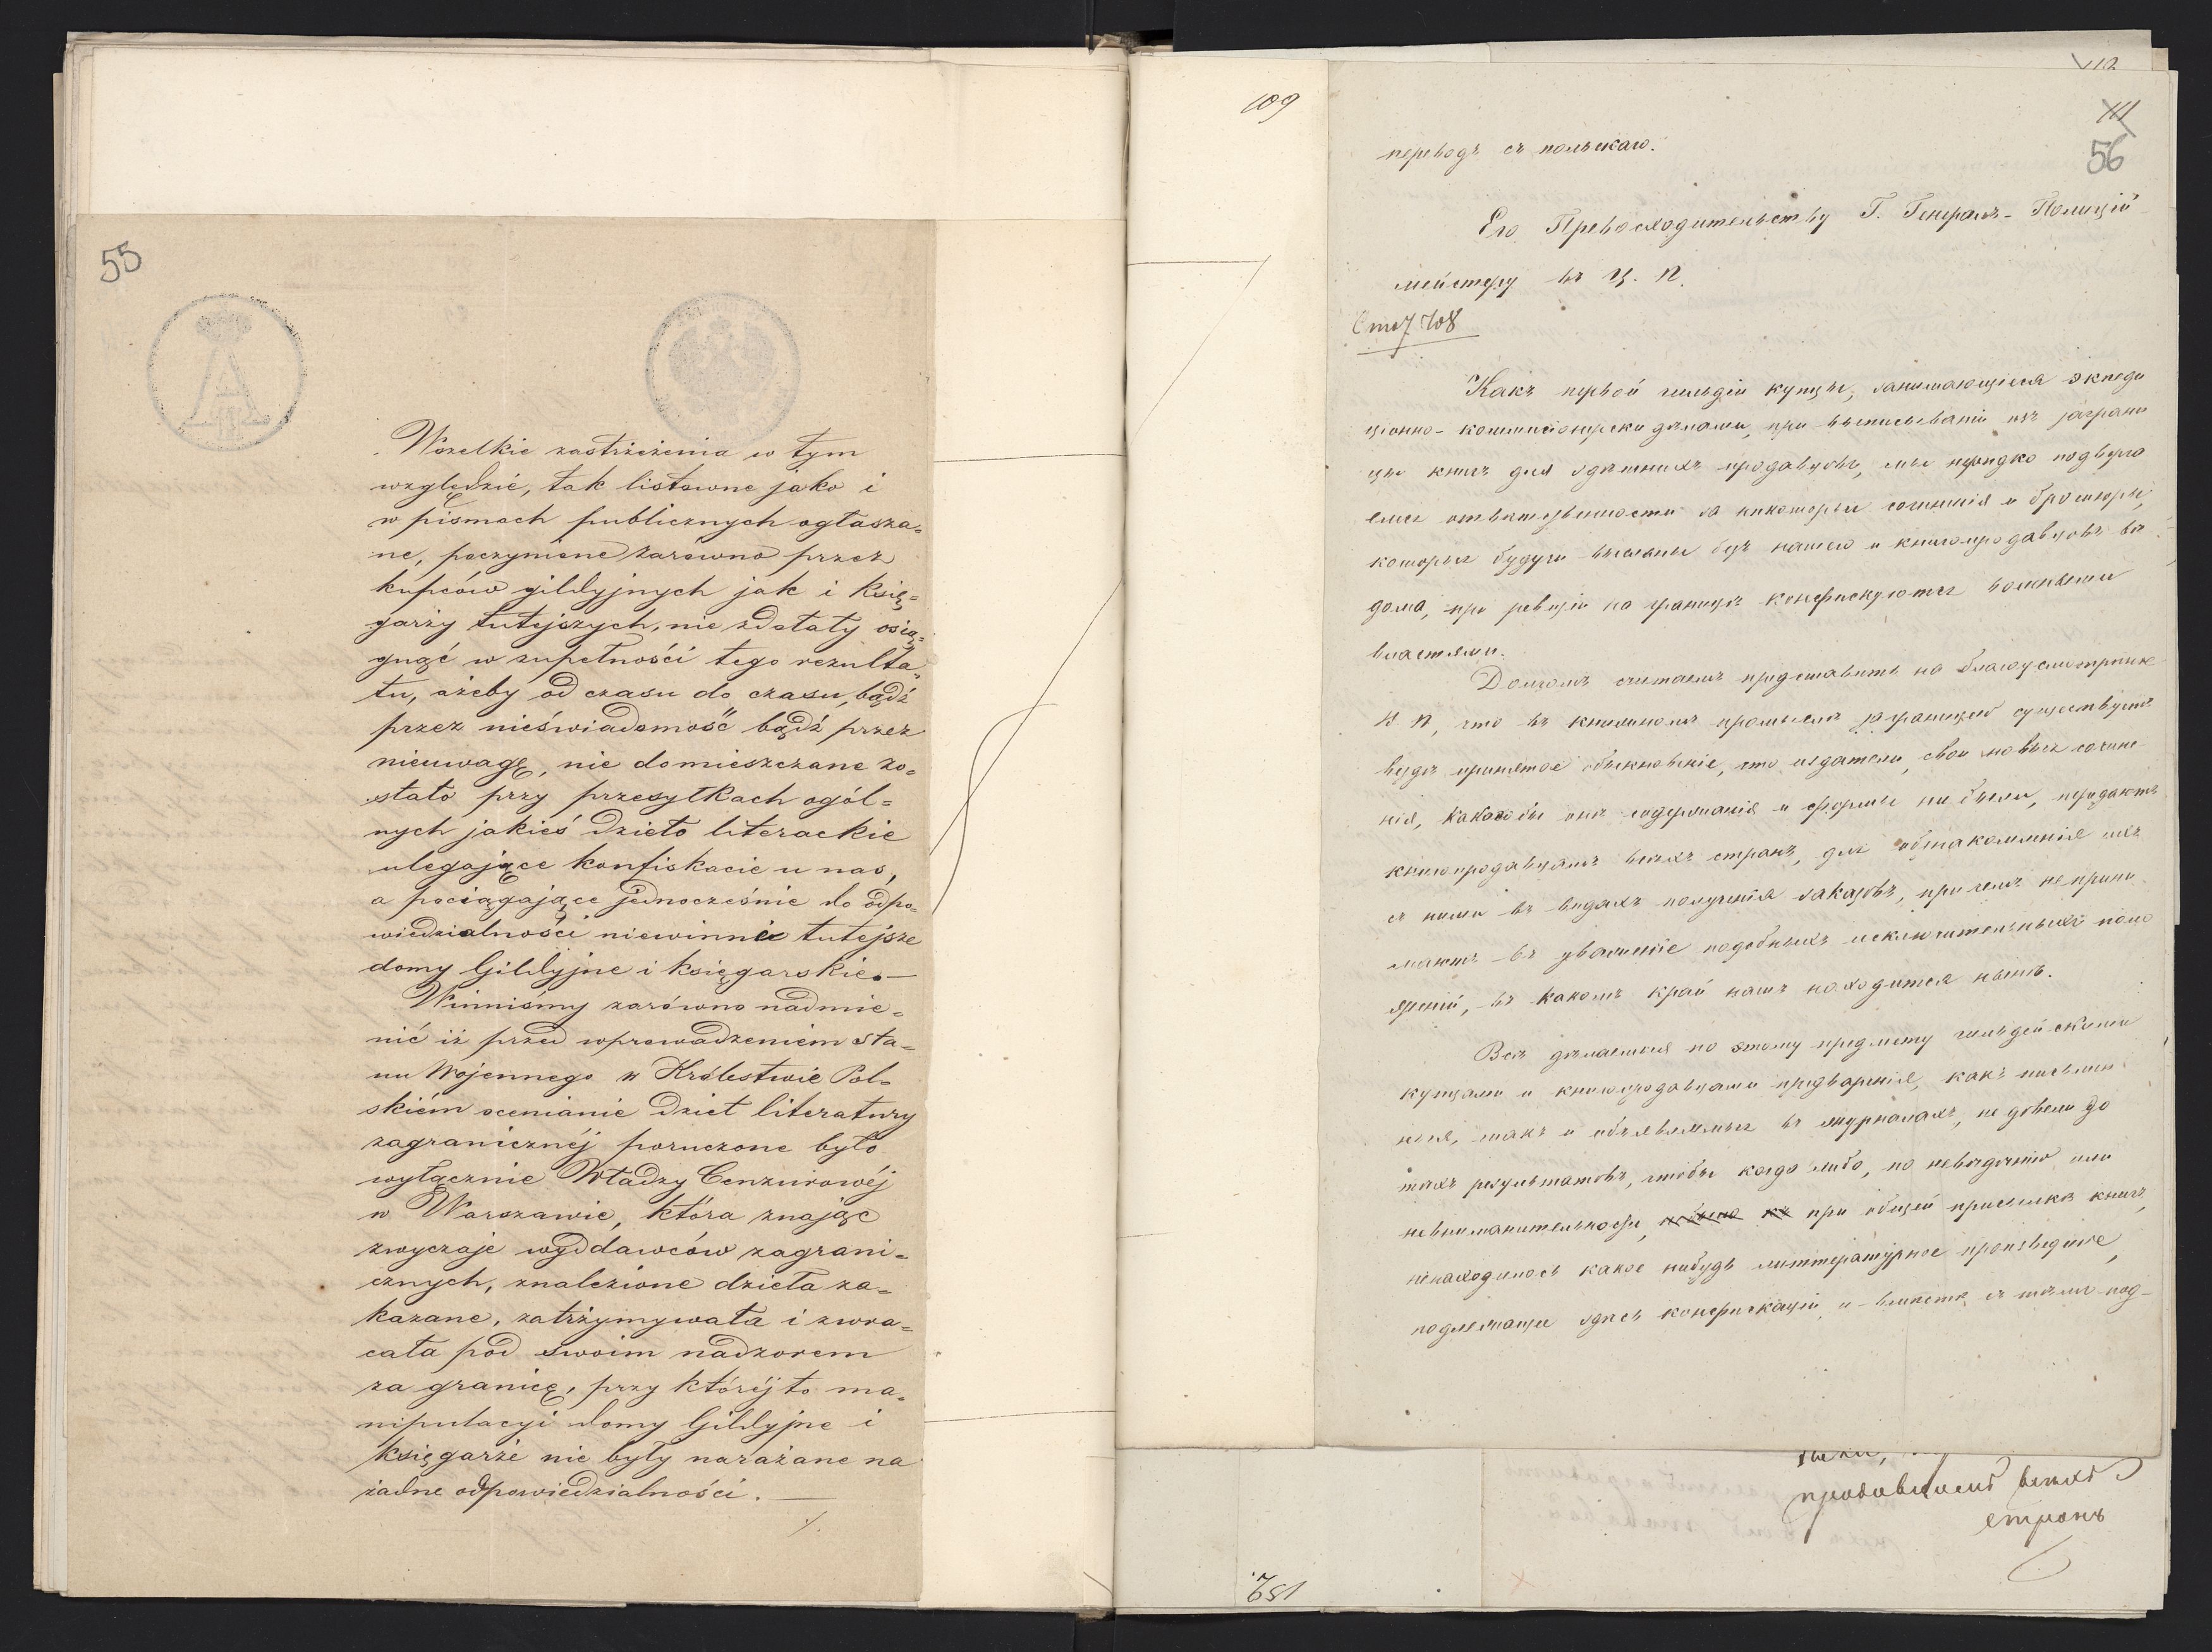 55
Wszelkie zastrzeżenia w tym
względzie, tak listowne jako i
w pismach publicznych ogłasza=
ne, poczynione zarówno przez
kupców gildyjnych jak i księ=
garzy tutejszych, nie zdołały osią=
gnąć w zupełności tego rezulta=
tu, ażeby od czasu do czasu, bądź
przez nieświadomość bądź przez
nieuwagę, nie domieszczane zo=
stało przy przesyłkach ogól=
nych jakieś dzieło literackie
ulegające konfiskacie u nas,
a pociągające jednocześnie do odpo=
wiedzialności niewinne tutejsze
domy Gildyjne i księgarskie.—
Winniśmy zarówno nadmie=
nić iż przed wprowadzeniem sta=
nu Wojennego w Królestwie Pol=
skiém ocenianie dzieł literatury
zagranicznéj poruczone było
wyłącznie Władzy Cenzurowéj
w Warszawie, która znając
zwyczaje wyddawców zagrani=
cznych, znalezione dzieła za=
kazane, zatrzymywała i zwra=
cała pod swoim nadzorem
za granicę, przy któréj to ma=
nipulacyi domy Gildyjne i
księgarże nie były narażane na
żadne odpowiedzialności. —
109
111
56
переводъ съ польскаго.
Его Превосходительству Г. Генералъ-Полиций
мейстеру въ Ц. П.
708
Какъ первой гильдіи купцы, занимающіеся экспеди
ціонно-коммисіонерски дѣлами, при выписываніи изъ заграни
цы книгъ для здѣшнихъ продавцовъ, мы нерѣдко подверга
емся отвѣтственности за некоторыя сочиненія и брошюры,
которыя будучи высланы безъ нашего и книгопродавцовъ вѣ
дома, при ревизіи на границѣ конфискуются военными
властями.
Долгомъ считаемъ представить на благоусмотрѣніе
В. П., что въ книжномъ промыслѣ заграницею существуетъ
вездѣ принятое обыкновеніе, что издатели, свои новыя сочине
нія, какого бы онѣ содержанія и формы ни были, передаютъ
книгопродавцамъ всѣхъ странъ, для ознакомленія ихъ
съ ними въ видахъ полученія заказовъ, при чемъ не прини
маютъ въ уваженіе подобныхъ исключительныхъ поло
женій, въ какомъ край нашъ находится нынѣ.
Всѣ дѣлаемыя по этому предмету гильдейскими
купцами и книгопродавцами предваренія, какъ письмен
ныя, такъ и объявляемыя въ журналахъ, не довели до
тѣхъ результатовъ, чтобы когда либо, по невѣденію или
невнимательности, при общей присылкѣ книгъ,
ненаходилось какое нибудь литтературное произведеніе,
подлежащее здѣсь конфискаціи и вмѣстѣ съ тѣмъ под-
продавцамъ всѣхъ
странъ
152.